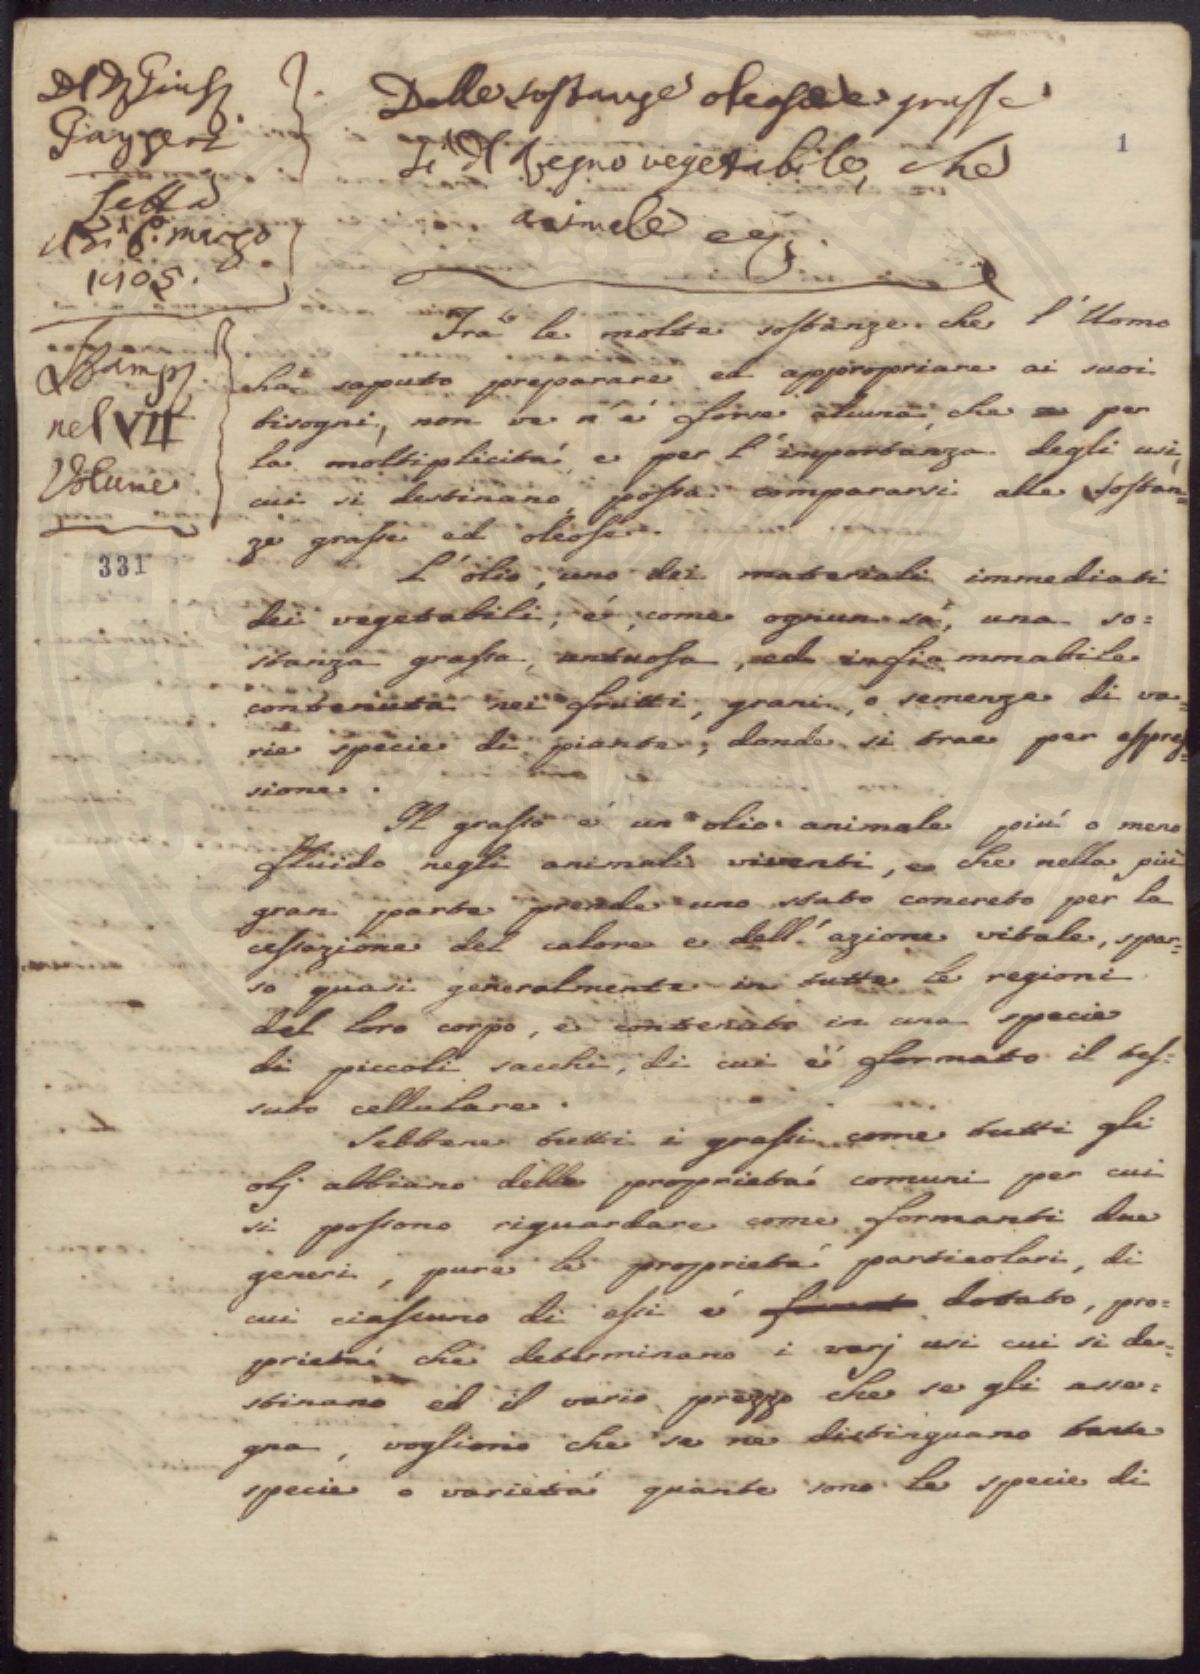 Del D. Giusp.
Gazzeri
Letta
il dì 6. marzo
1805.
Stamp.
nel VII
Volume
331
1
Delle sostanze oleose e grasse
sì del Regno vegetabile, che
animale ec.
Tra le molte sostanze che l'Uomo
ha saputo preparare ed appropriare ai suoi
bisogni, non ve n'é forse alcuna, che per
la moltiplicitá e per l'importanza degli usi,
cui si destinano, possa compararsi alle sostan=
ze grasse ed oleose.
L'olio, uno dei materiali immediati
dei vegetabili, é, come ognun sa, una so=
stanza grassa, untuosa, ed infiammabile
contenuta nei frutti, grani, o semenze di va=
rie specie di piante, donde si trae per espres=
sione.
Il grasso é un olio animale piú o meno
fluido negli animali viventi, e che nella piú
gran parte prende uno stato concreto per la
cessazione del calore e dell'azione vitale, spar=
so quasi generalmente in tutte le regioni
del loro corpo, e contenuto in una specie
di piccoli sacchi, di cui é formato il tes=
suto cellulare.
Sebbene tutti i grassi come tutti gli
olj abbiano delle proprietá comuni per cui
si possono riguardare come formanti due
generi, pure le proprietá particolari, di
cui ciascuno di essi é dotato, pro=
prietá che determinano i varj usi cui si de=
stinano ed il vario prezzo che se gli asse=
gna, vogliono che se ne distinguano tante
specie o varietá quante sono le specie di